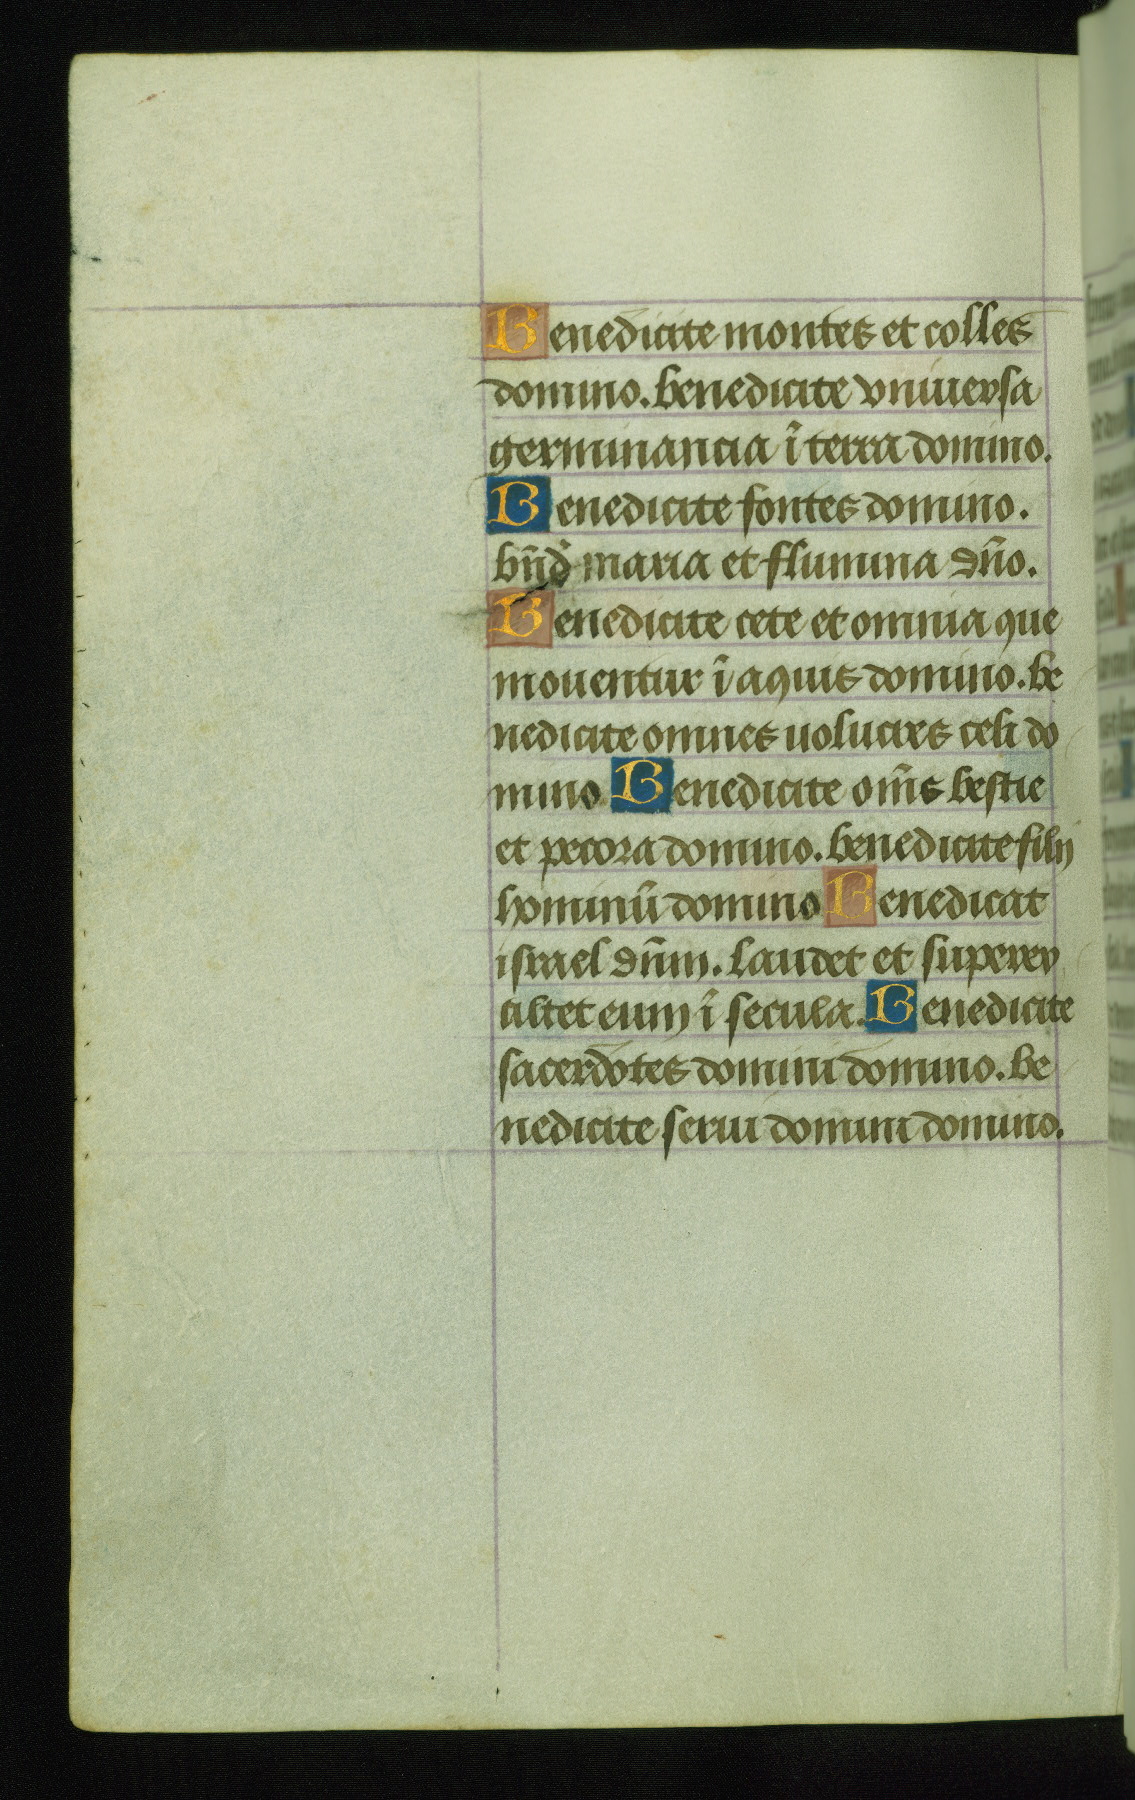 Benedicite montes et colles
domino. benedicite vniuersa
germinancia ī terra domino.
Benedicite fontes domino.
bn̄d̄ maria et flumina dn̄o.
Benedicite cete et omnia que
mouentur ī aquis domino. be
nedicite omnes uolucres celi do
mino Benedicite om̄s bestie
et pecora domino. benedicite filij
hominū domino Benedicat
israel dn̄m. laudet et superex
altet eum ī secula. Benedicite
sacerdotes domini domino. be
nedicite serui domini domino.